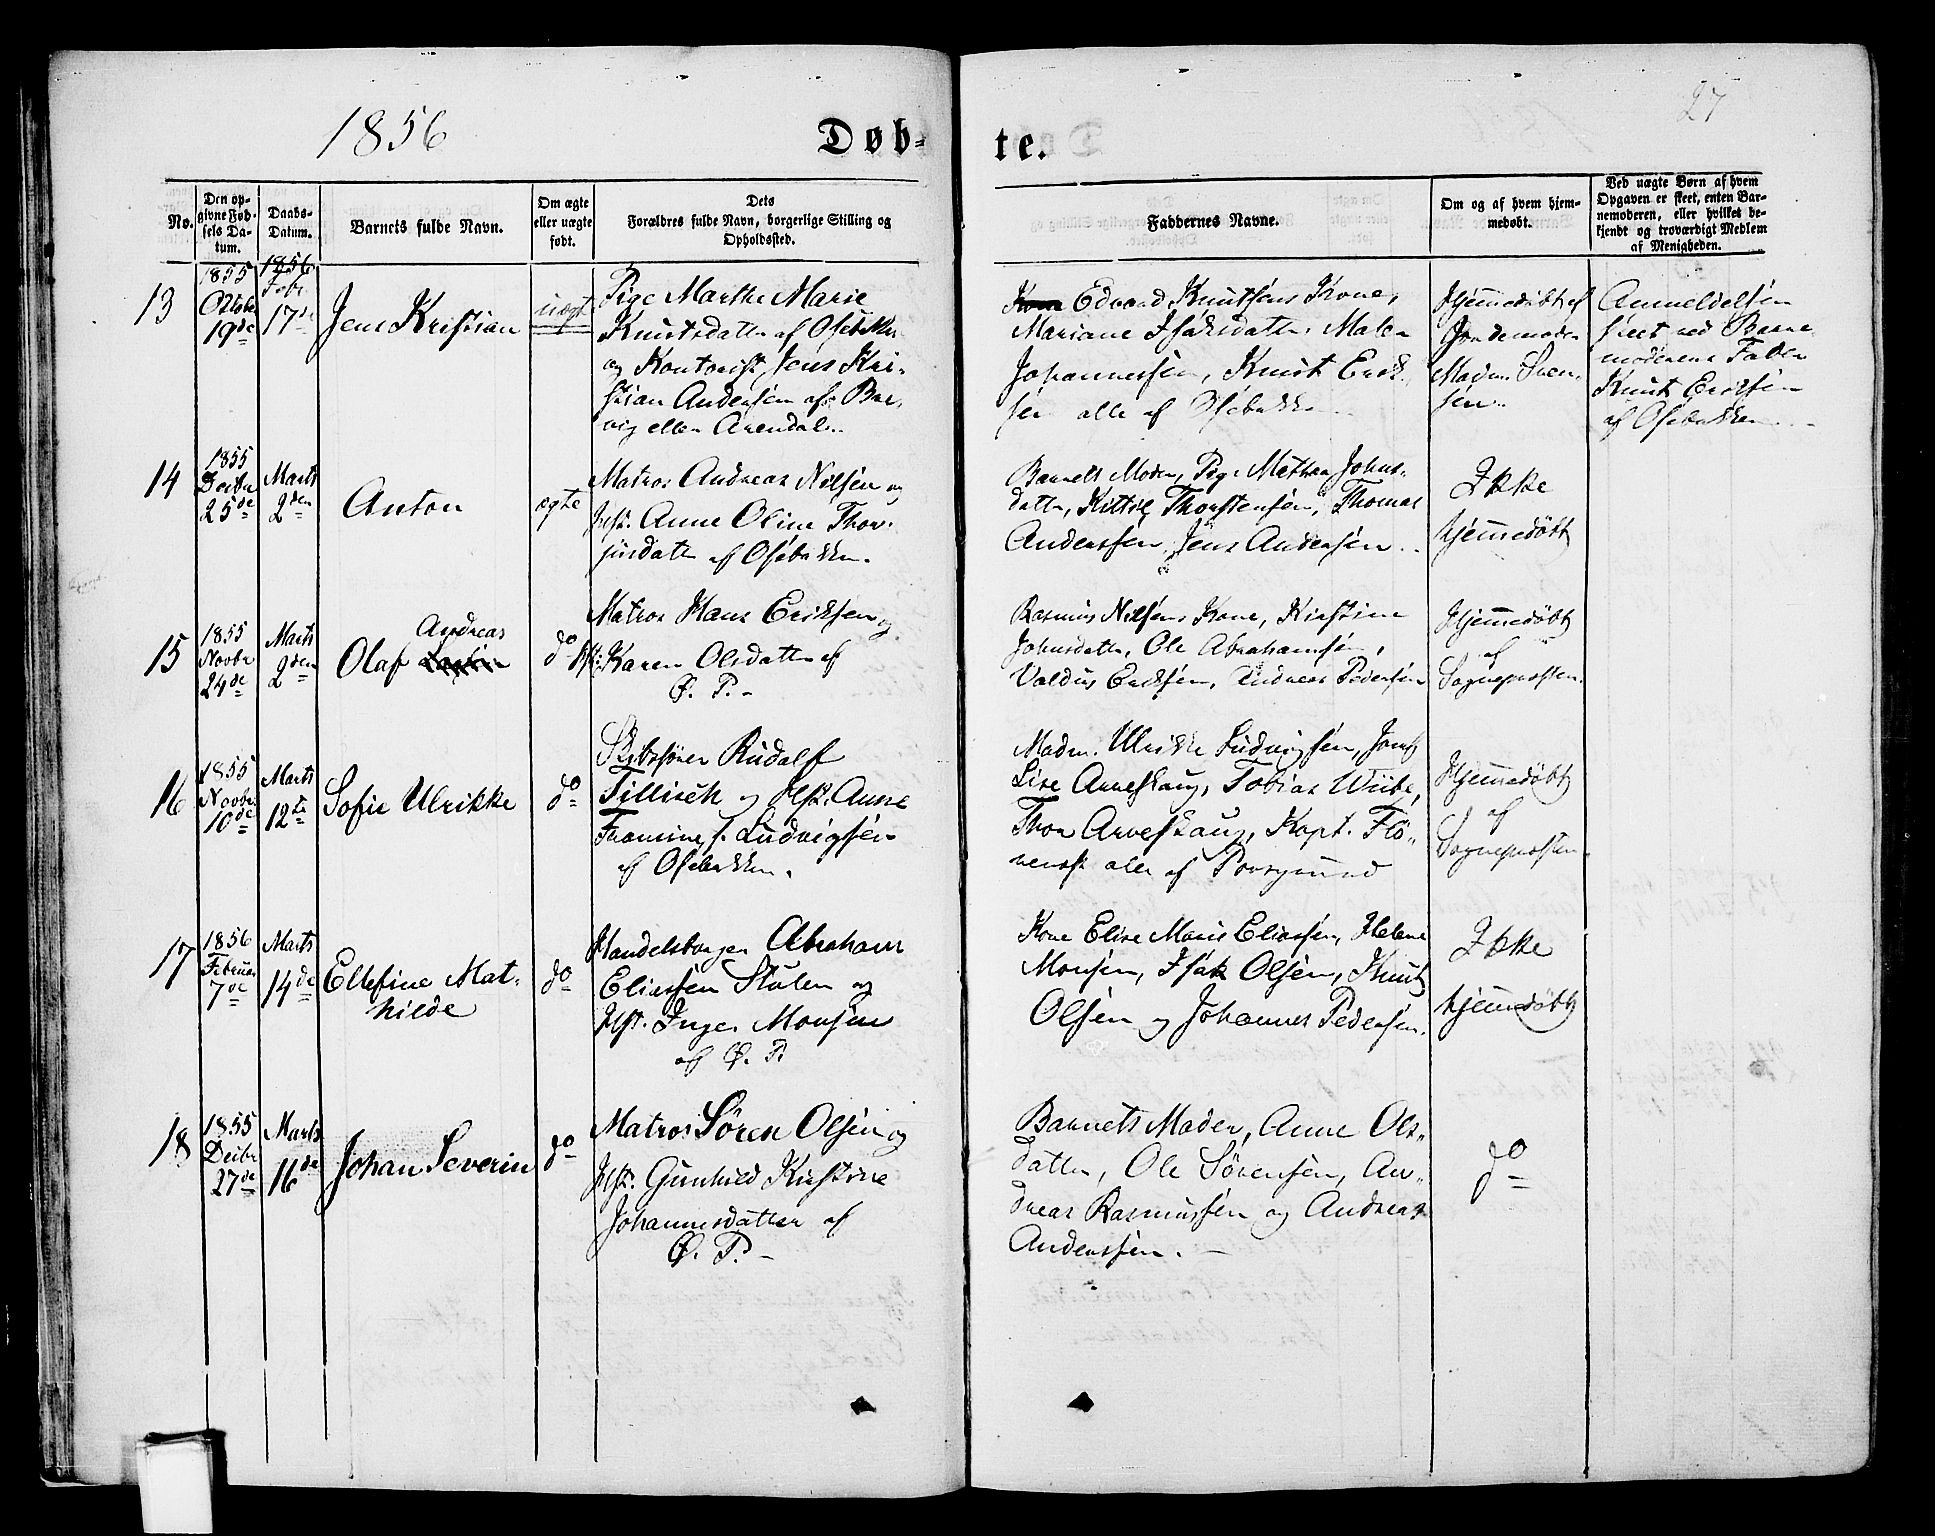 1856
27
Døb-
te.
No.
Den op-
givne Fød-
sels Da-
tum.
Daabs-
Datum.
Barnets fulde Navn.
Om ægte
eller uægte
født.
Dets
Forældres fulde Navn, borgerlige Stilling og
Opholdssted.
Faddernes Navne.
Om og af hvem hjem-
medøbt.
Ved uægte Børn af hvem
Opgaven er skeet, enten Bar-
nemoderen, eller hvilket be-
kjendt og troværdigt Medlem
af Menigheden.
13
1855
Octobr
19de
1856
Febr
17de
Jens Kristian
uægte
Pige Marthe Marie
Knutsdatter af Osebakken
og Kontorist Jens Kri-
stian Andersen af Bre-
vig eller Arendal.
Edvard Knutsens Kone,
Mariane Isaksdatter, Maler
Johannessen, Knut Erik-
sen alle af Osebakken
Hjemmedøbt af
Jordemoder
Madm. Sven-
sen.
Anmeldelsen
skeet ved Barne
moderens Fader
Knut Eriksen
af Osebakken
14
1855
Decbr
25de
Marts
2den
Anton
ægte
Matros Andreas Nilsen og
Hst. Anne Oline Thor-
jusdatter af Osebakken.
Barnets Moder, Pige Mathea Johns-
datter, Kittil Thorstensen, Thomas
Anderssen, Jens Andersen
Ikke
hjemmedøbt
15
1855
Novbr
24de
Marts
2den
Andreas
Olaf
do
Matros Hans Eriksen og
Hst. Karen Olsdatter af
Ø. P.
Rasmus Nilsens Kone, Kirstine
Johnsdatter, Ole Abrahamsen,
Valdus Eriksen, Andreas Pedersen
Hjemmedøbt
af
Sognepresten.
16
1855
Novbr.
10de
Marts
12te
Sofie Ulrikke
do
Skibsfører Rudolf
Tillisch og Hst. Anne
Fransine f. Ludvigsen
af Osebakken.
Madm. Ulrikke Ludvigsen, Jomf
Lise Arveskaug, Tobias Wiibe,
Thor Arveskaug, Kapt. Flø-
rensk alle af Porsgrund
Hjemmedøbt
af
Sognepresten
17
1856
Februar
7de
Marts
14de
Ellefine Mat-
hilde
do
Handelsborger Abraham
Eliassen Stulen og
Hst. Inger Monsen
af Ø. P.
Kone Elise Marie Eliassen, Helene
Monsen, Isak Olsen, Knut
Olsen og Johannes Pedersen.
Ikke
hjemmedøbt
18
1855
Decbr
27de
Marts
16de
Johan Severin
do
Matros Søren Olsen og
Hst. Gunhild Kirstine
Johannesdatter af
Ø. P.
Barnets Moder, Anne Ols-
datter, Ole Sørensen, An-
dreas Rasmussen og Andreas
Anderssen.
do